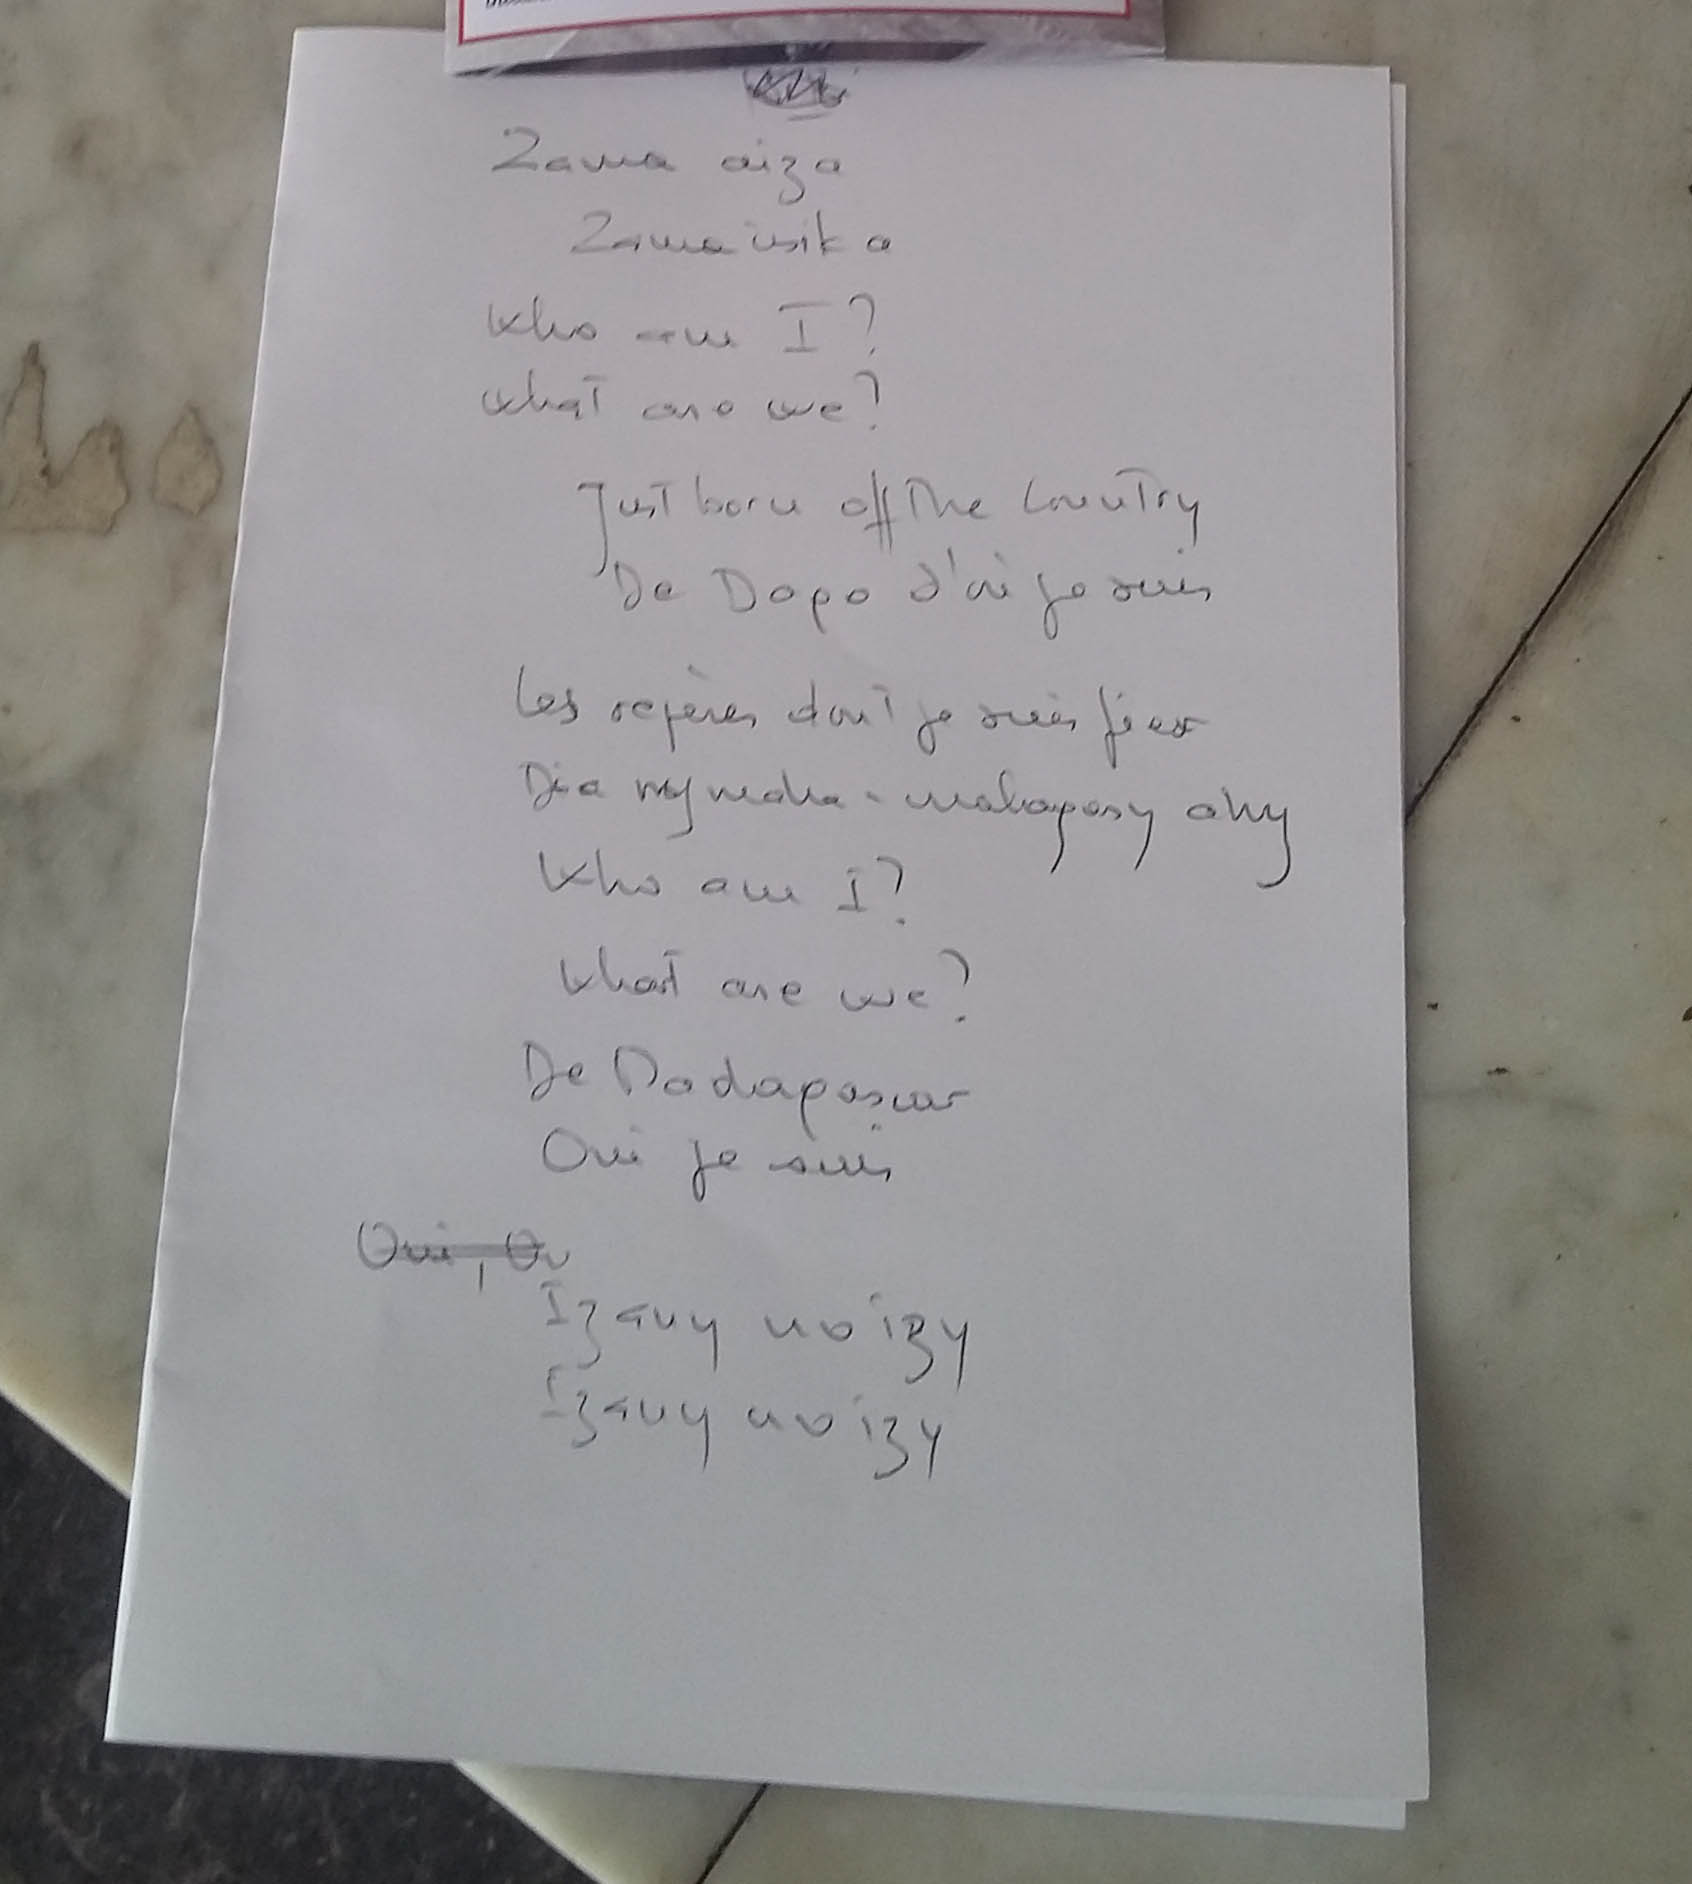 Zama aiza
Zama isika
Who am I?
What are we?
Just born off The Country
De Dago d'où je suis
Les repères dont je suis fier
Dia ny maha-malagasy ahy
Who am I?
What are we?
De Madagascar
Oui je suis
Oui, Ou
Izany no izy
Izany no izy